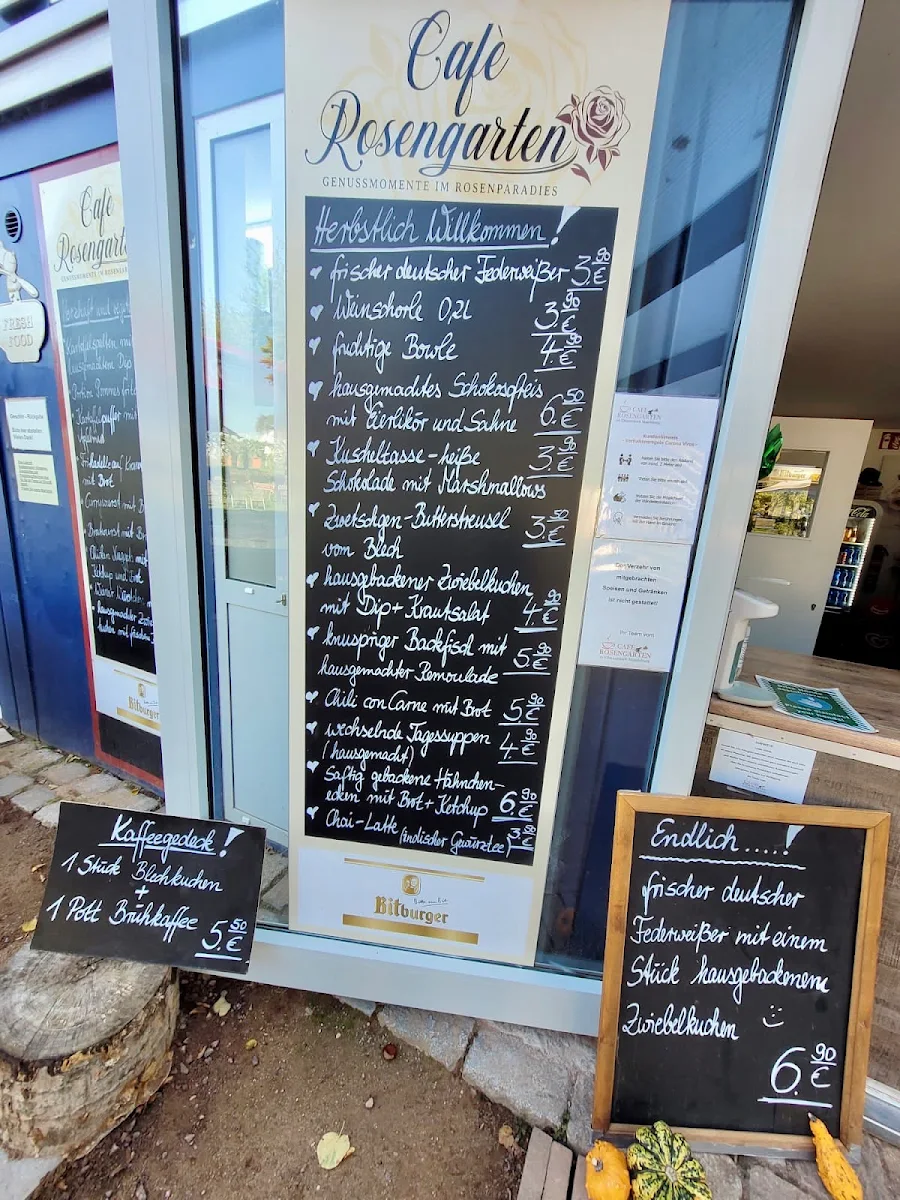 Cafè
Rosengarten
GENUSSMOMENTE IM ROSENPARADIES
Herbstlich Willkommen!
frischer deutscher Federweißer 3.90 €
Weinschorle 0,2l 3.90 €
fruchtige Bowle 4.90 €
hausgemachtes Schokospeis
mit Eierlikör und Sahne 6.50 €
Kuscheltasse - heiße 3.90 €
Schokolade mit Marshmallows
Zwetschgen - Butterstreusel 3.50 €
vom Blech
hausgebackener Zwiebelkuchen
mit Dip + Krautsalat 4.90 €
knuspriger Backfisch mit 5.90 €
hausgemachter Remoulade
Chili con Carne mit Brot 5.90 €
wechselnde Tagessuppen 4.90 €
(hausgemacht)
Saftig gebackene Hähnchen-
ecken mit Brot + Ketchup 6.90 €
Chai - Latte (indischer Gewürztee) 3.90 €
Bitburger
Kaffeegedeck!
1 Stück Blechkuchen
+
1 Pott Brühkaffee 5.50 €
Endlich.....!
frischer deutscher
Federweißer mit einem
Stück hausgebackenem
Zwiebelkuchen
6.90 €
Cafè
Rosengart
FRESH
FOOD
Bitburger
CAFE
ROSENGARTEN
Der Verzehr von
mitgebrachten
Speisen und Getränken
ist nicht gestattet!
Ihr Team vom
CAFE
ROSENGARTEN